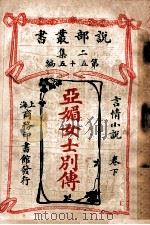 說部叢書
第二集
第五十五編
言情小說
亞媚女士別傳
卷下
上海商務印書館發行